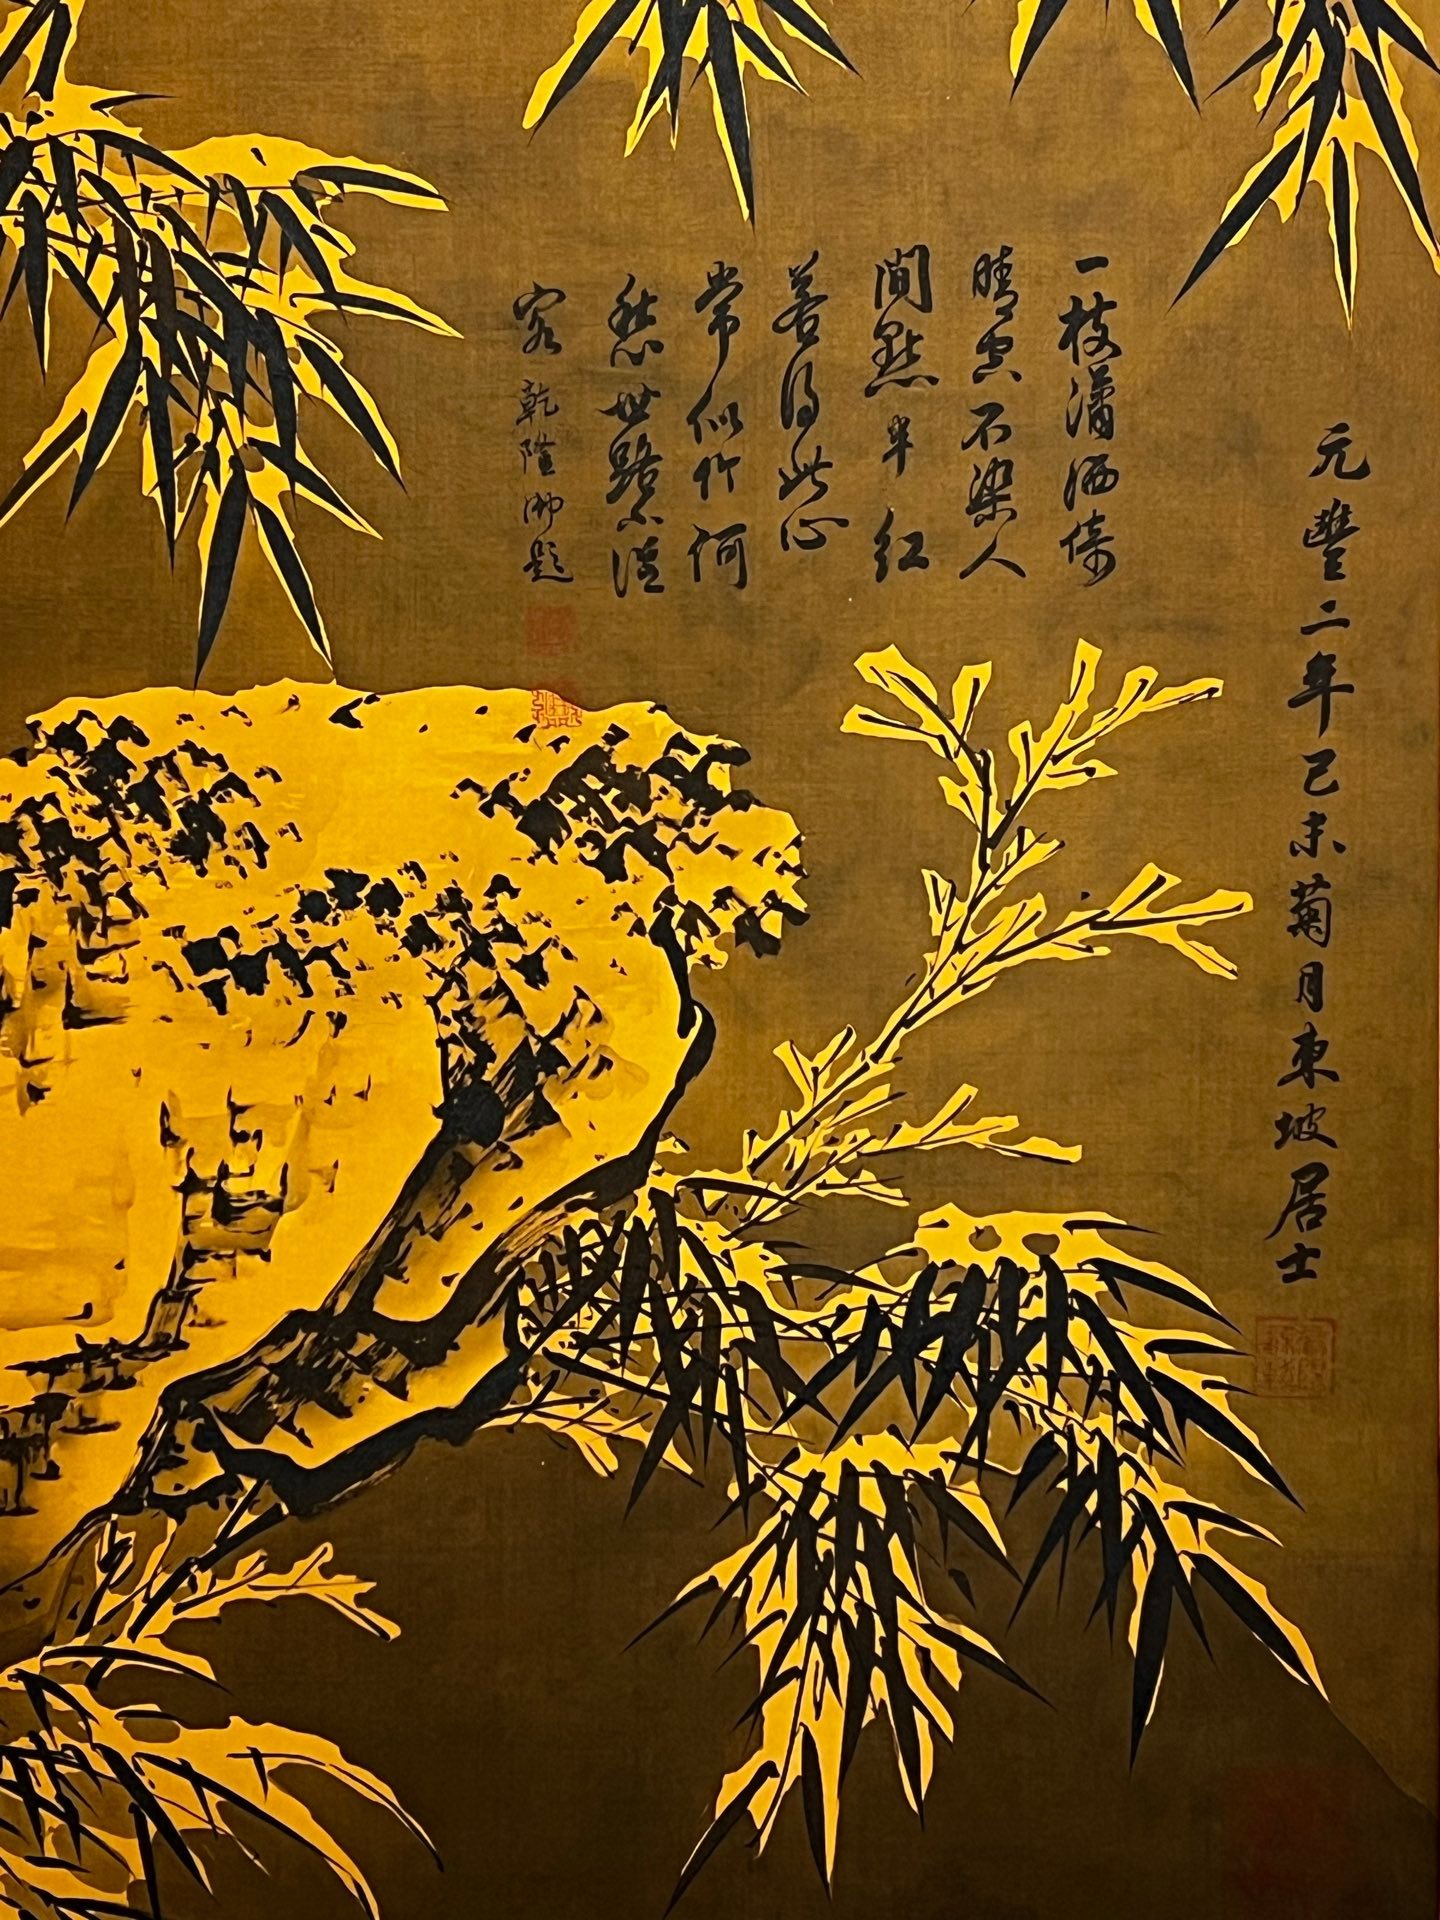 元豐二年己未菊月東坡居士
一枝瀟洒倚
晴空不染人
間點半紅
若得此心
常似竹何
愁世路不從
容乾隆御題